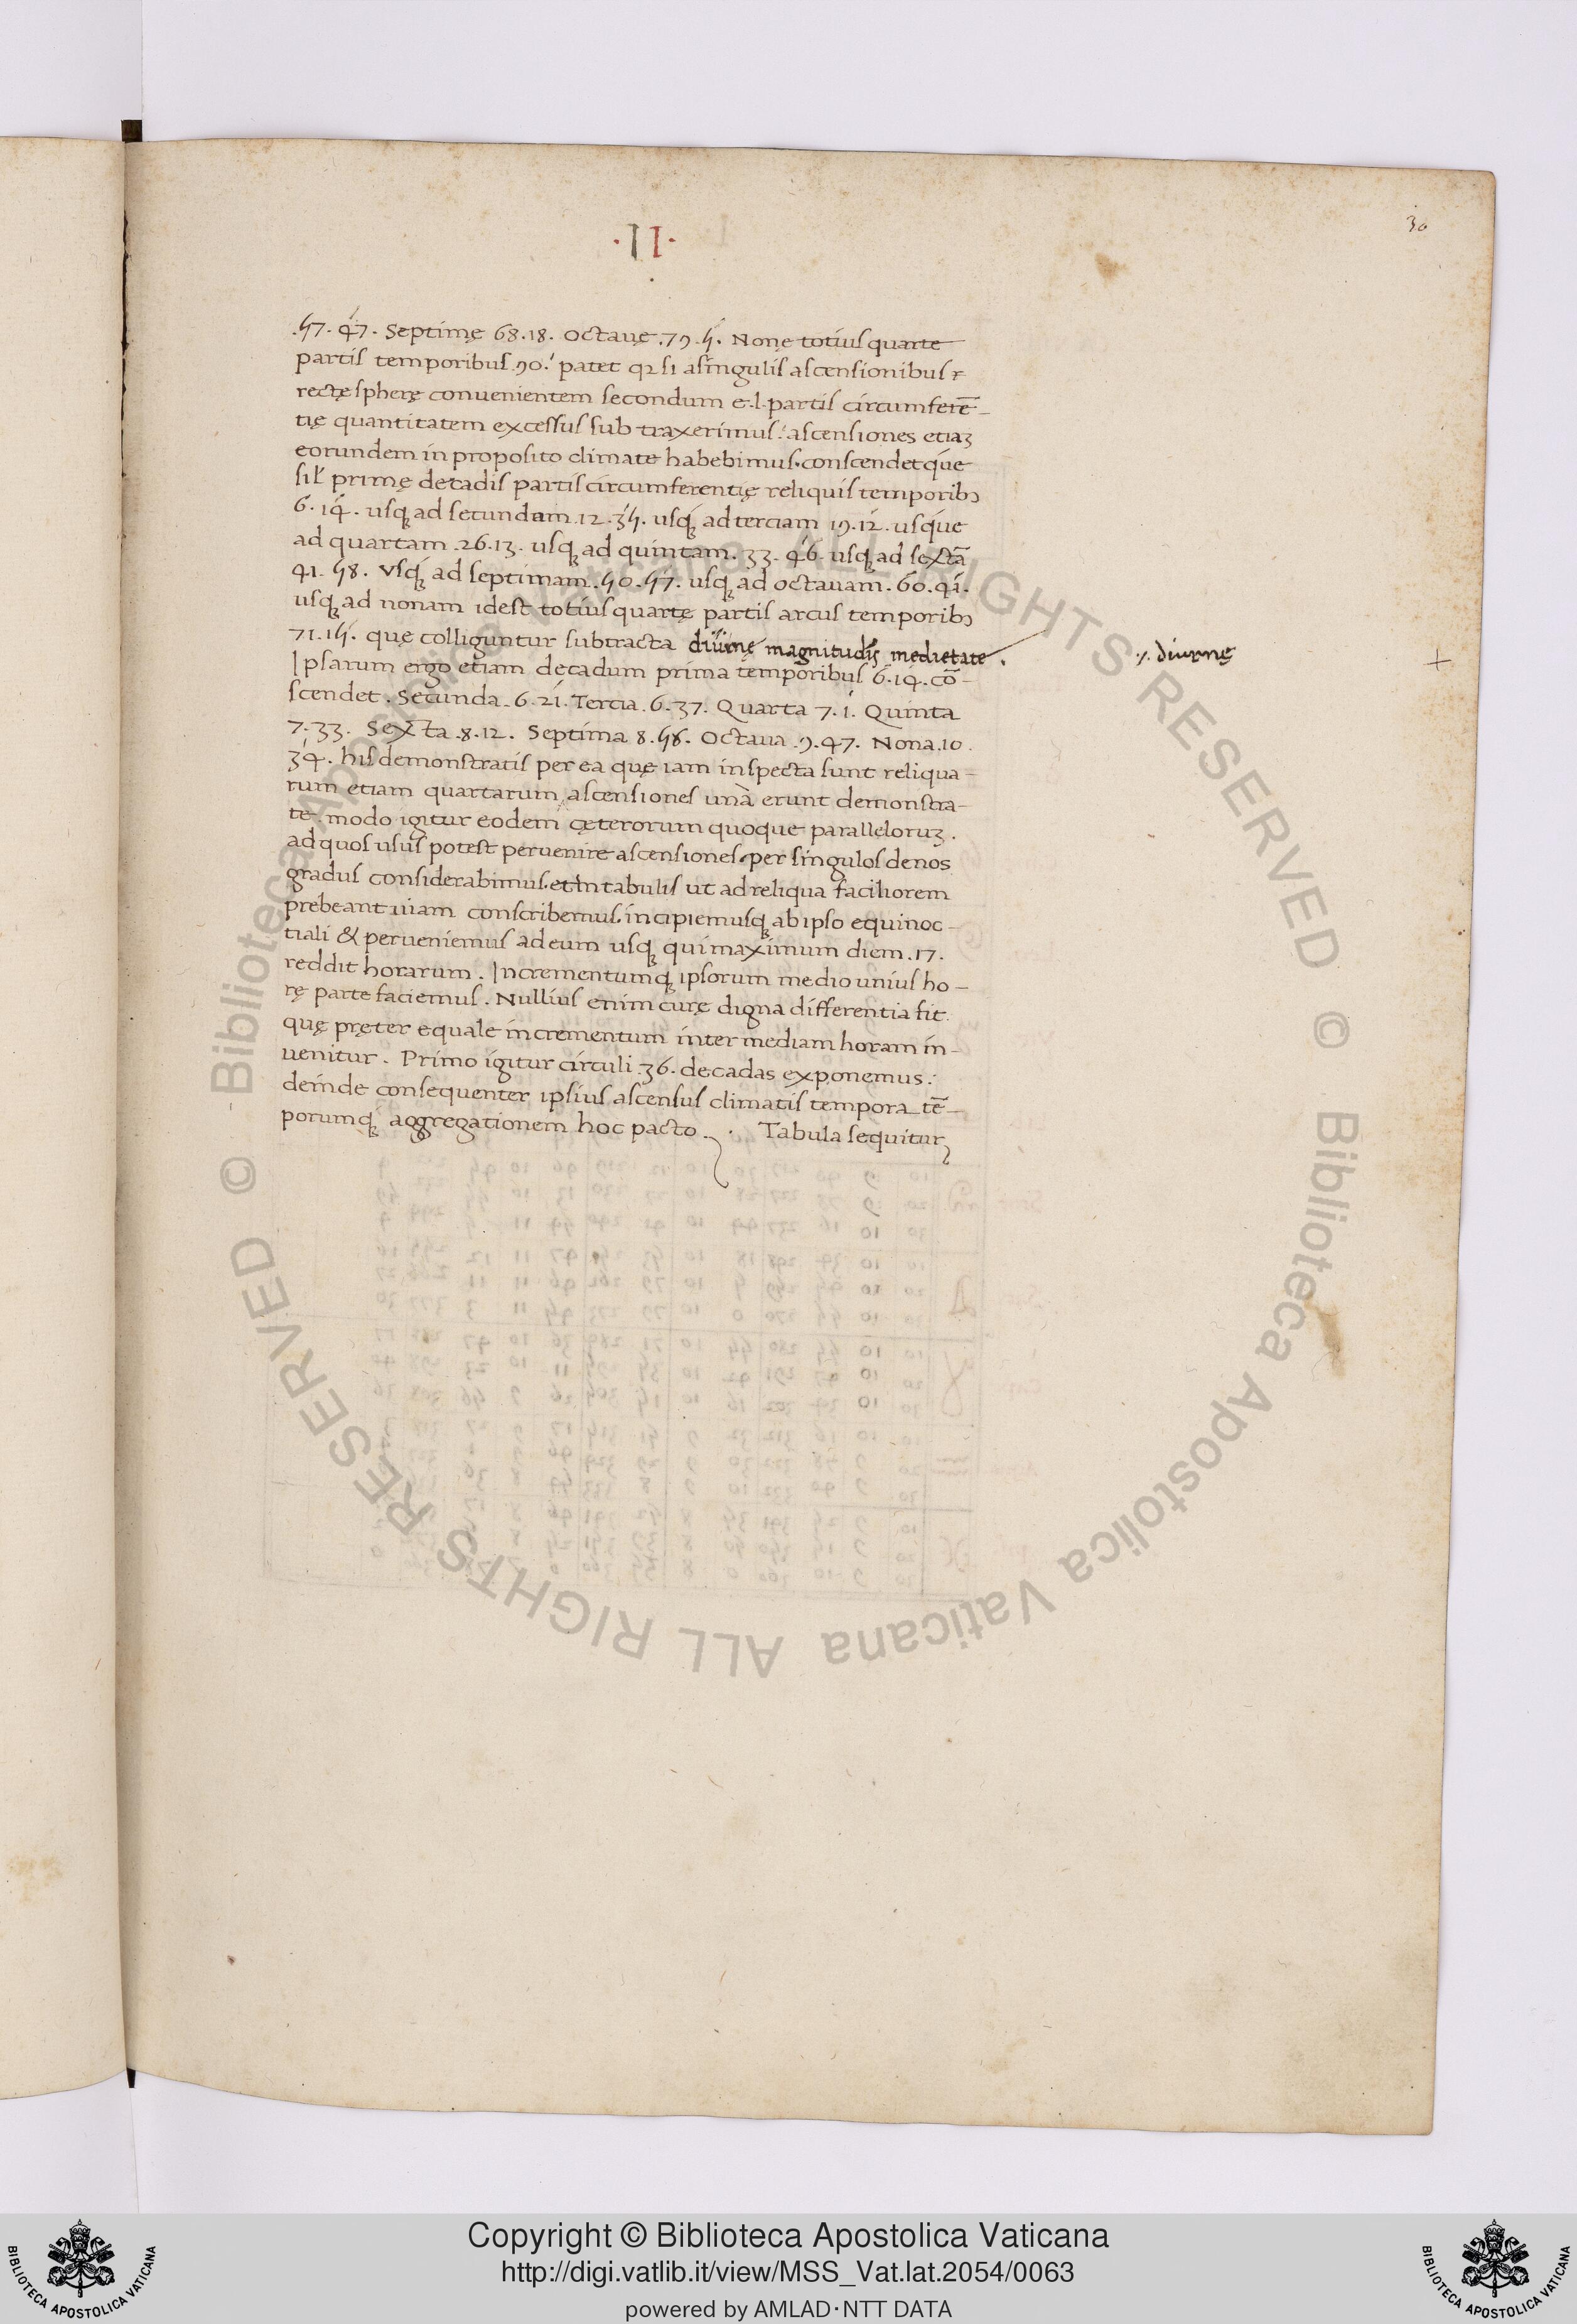 30
·II·
.57. 47. Septimę 68.18. Octauę .79.5. Nonę totius quarte
partis temporibus .90.' patet q2 si a singulis ascensionibus
rectę spherę conuenientem secondum e.l. partis circumferē-
tię quantitatem excessus sub traxerimus: ascensiones etiaꝫ
eorundem in proposito climate habebimus. conscendet que
sil' primę decadis partis circumferentię reliquis temporibꝰ
6.14. usqꝫ ad secundam .12.35. usqꝫ ad terciam 19.12. usque
ad quartam .26.13. usqꝫ ad quintam. 33.46. usqꝫ ad sextā
41.58. Vsqꝫ ad septimam .50.57. usqꝫ ad octauam. 60.41.
usqꝫ ad nonam idest totius quartę partis arcus temporibꝰ
71.15. quę colliguntur subtracta diurnę magnitudīs medietate.
·/. diurnę
Ipsarum ergo etiam decadum prima temporibus 6.14. cō-
scendet. Secunda. 6.21. Tercia .6.37. Quarta 7.1. Quinta
7.33. Sexta .8.12. Septima 8.58. Octaua .9.47. Nona .10.
34. his demonstratis per ea quę iam inspecta sunt reliqua-
rum etiam quartarum ascensiones unà erunt demonstra-
te. modo igitur eodem cęterorum quoque paralleloruꝫ.
ad quos usus potest peruenire ascensiones per singulos denos
gradus considerabimus. et in tabulis ut ad reliqua faciliorem
prebeant uiam conscribemus. incipiemusqꝫ ab ipso equinoc-
tiali & perueniemus ad eum usqꝫ qui maximum diem .17.
reddit horarum. Incrementumqꝫ ipsorum medio unius ho-
rę parte faciemus. Nullius enim curę digna differentia fit
quę pręter equale incrementum inter mediam horam in-
uenitur. Primo igitur circuli .36. decadas exponemus:
deinde consequenter ipsius ascensus climatis tempora tē-
porumqꝫ aggregationem hoc pacto. . Tabula sequitur
© Biblioteca Apostolica Vaticana ALL RIGHTS RESERVED © Biblioteca Apostolica Vaticana ALL RIGHTS RESERVED
BIBLIOTECA APOSTOLICA VATICANA
Copyright © Biblioteca Apostolica Vaticana
http://digi.vatlib.it/view/MSS_Vat.lat.2054/0063
powered by AMLAD·NTT DATA
BIBLIOTECA APOSTOLICA VATICANA